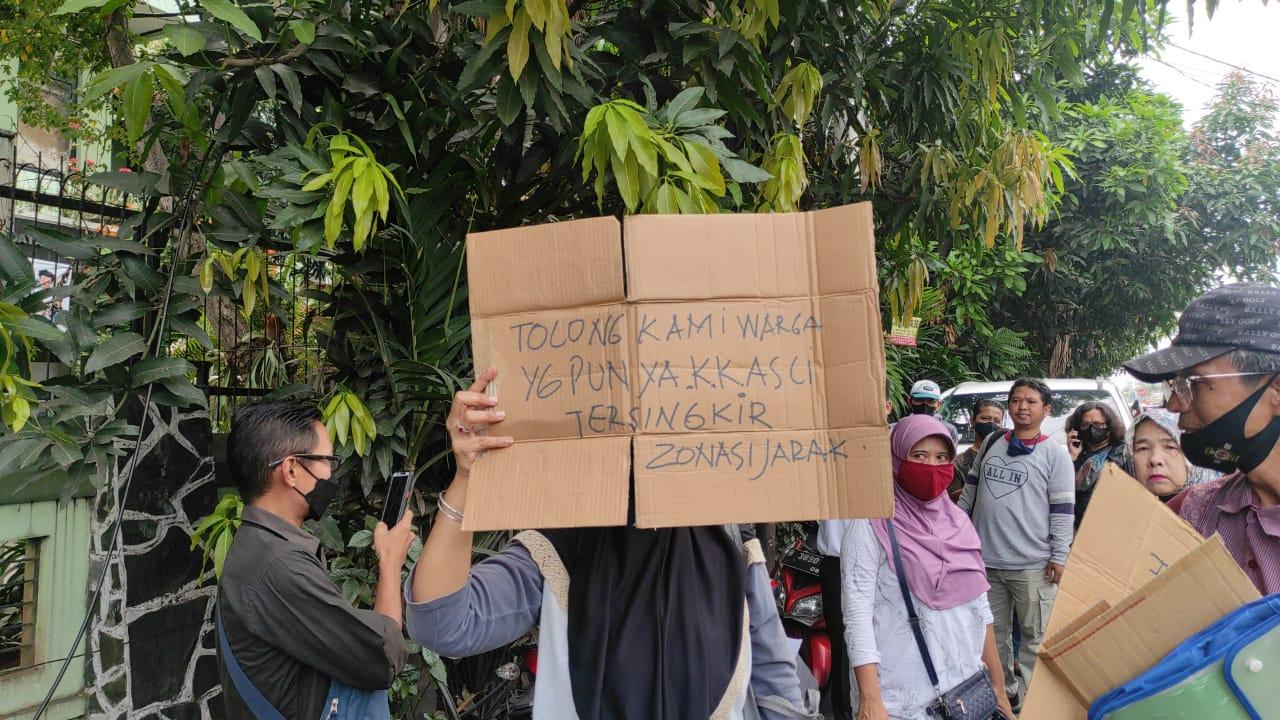 TOLONG KAMI WARGA
YG PUNYA.K.K.ASLI
TERSINGKIR
ZONASI JARAK.
ALL IN
BALLY GOLF
3850